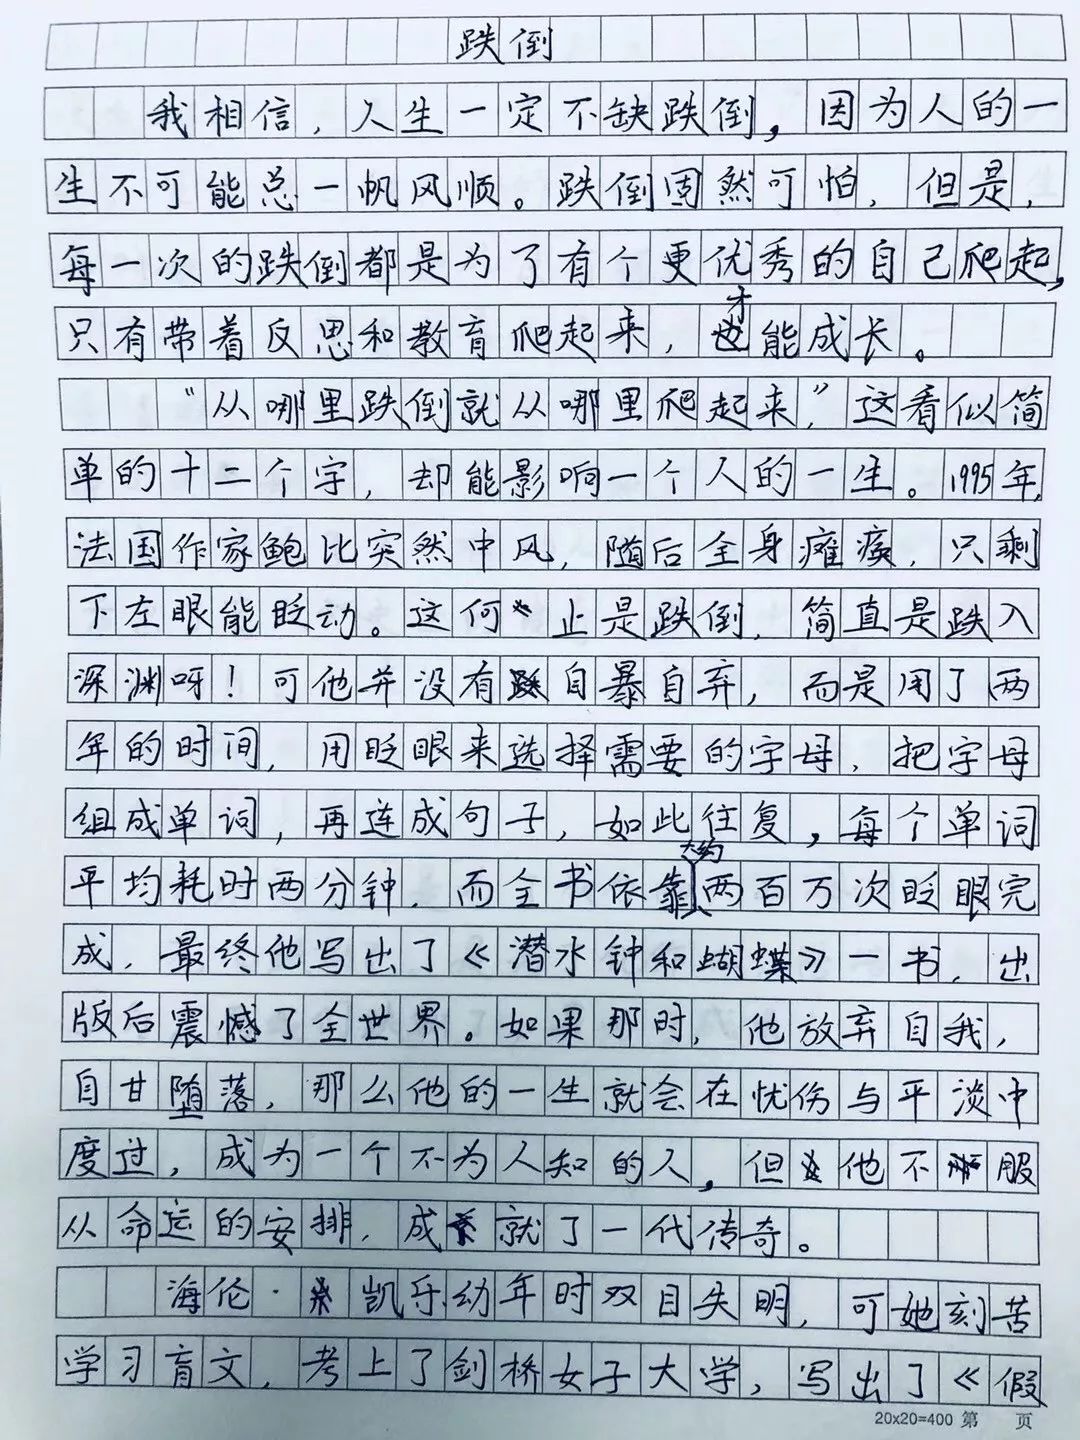 跌倒
我相信，人生一定不缺跌倒，因为人的一
生不可能总一帆风顺。跌倒固然可怕，但是，
每一次的跌倒都是为了有个更优秀的自己爬起，
只有带着反思和教育爬起来，才能成长。
“从哪里跌倒就从哪里爬起来，”这看似简
单的十二个字，却能影响一个人的一生。1995年，
法国作家鲍比突然中风，随后全身瘫痪，只剩
下左眼能眨动。这何止是跌倒，简直是跌入
深渊呀！可他并没有自暴自弃，而是用了两
年的时间，用眨眼来选择需要的字母，把字母
组成单词，再连成句子，如此往复，每个单词
平均耗时两分钟，而全书依靠大约两百万次眨眼完
成，最终他写出了《潜水钟和蝴蝶》一书，出
版后震憾了全世界。如果那时，他放弃自我，
自甘堕落，那么他的一生就会在忧伤与平淡中
度过，成为一个不为人知的人，但他不服
从命运的安排，成就了一代传奇。
海伦·凯乐幼年时双目失明，可她刻苦
学习盲文，考上了剑桥女子大学，写出了《假
20x20=400 第 页